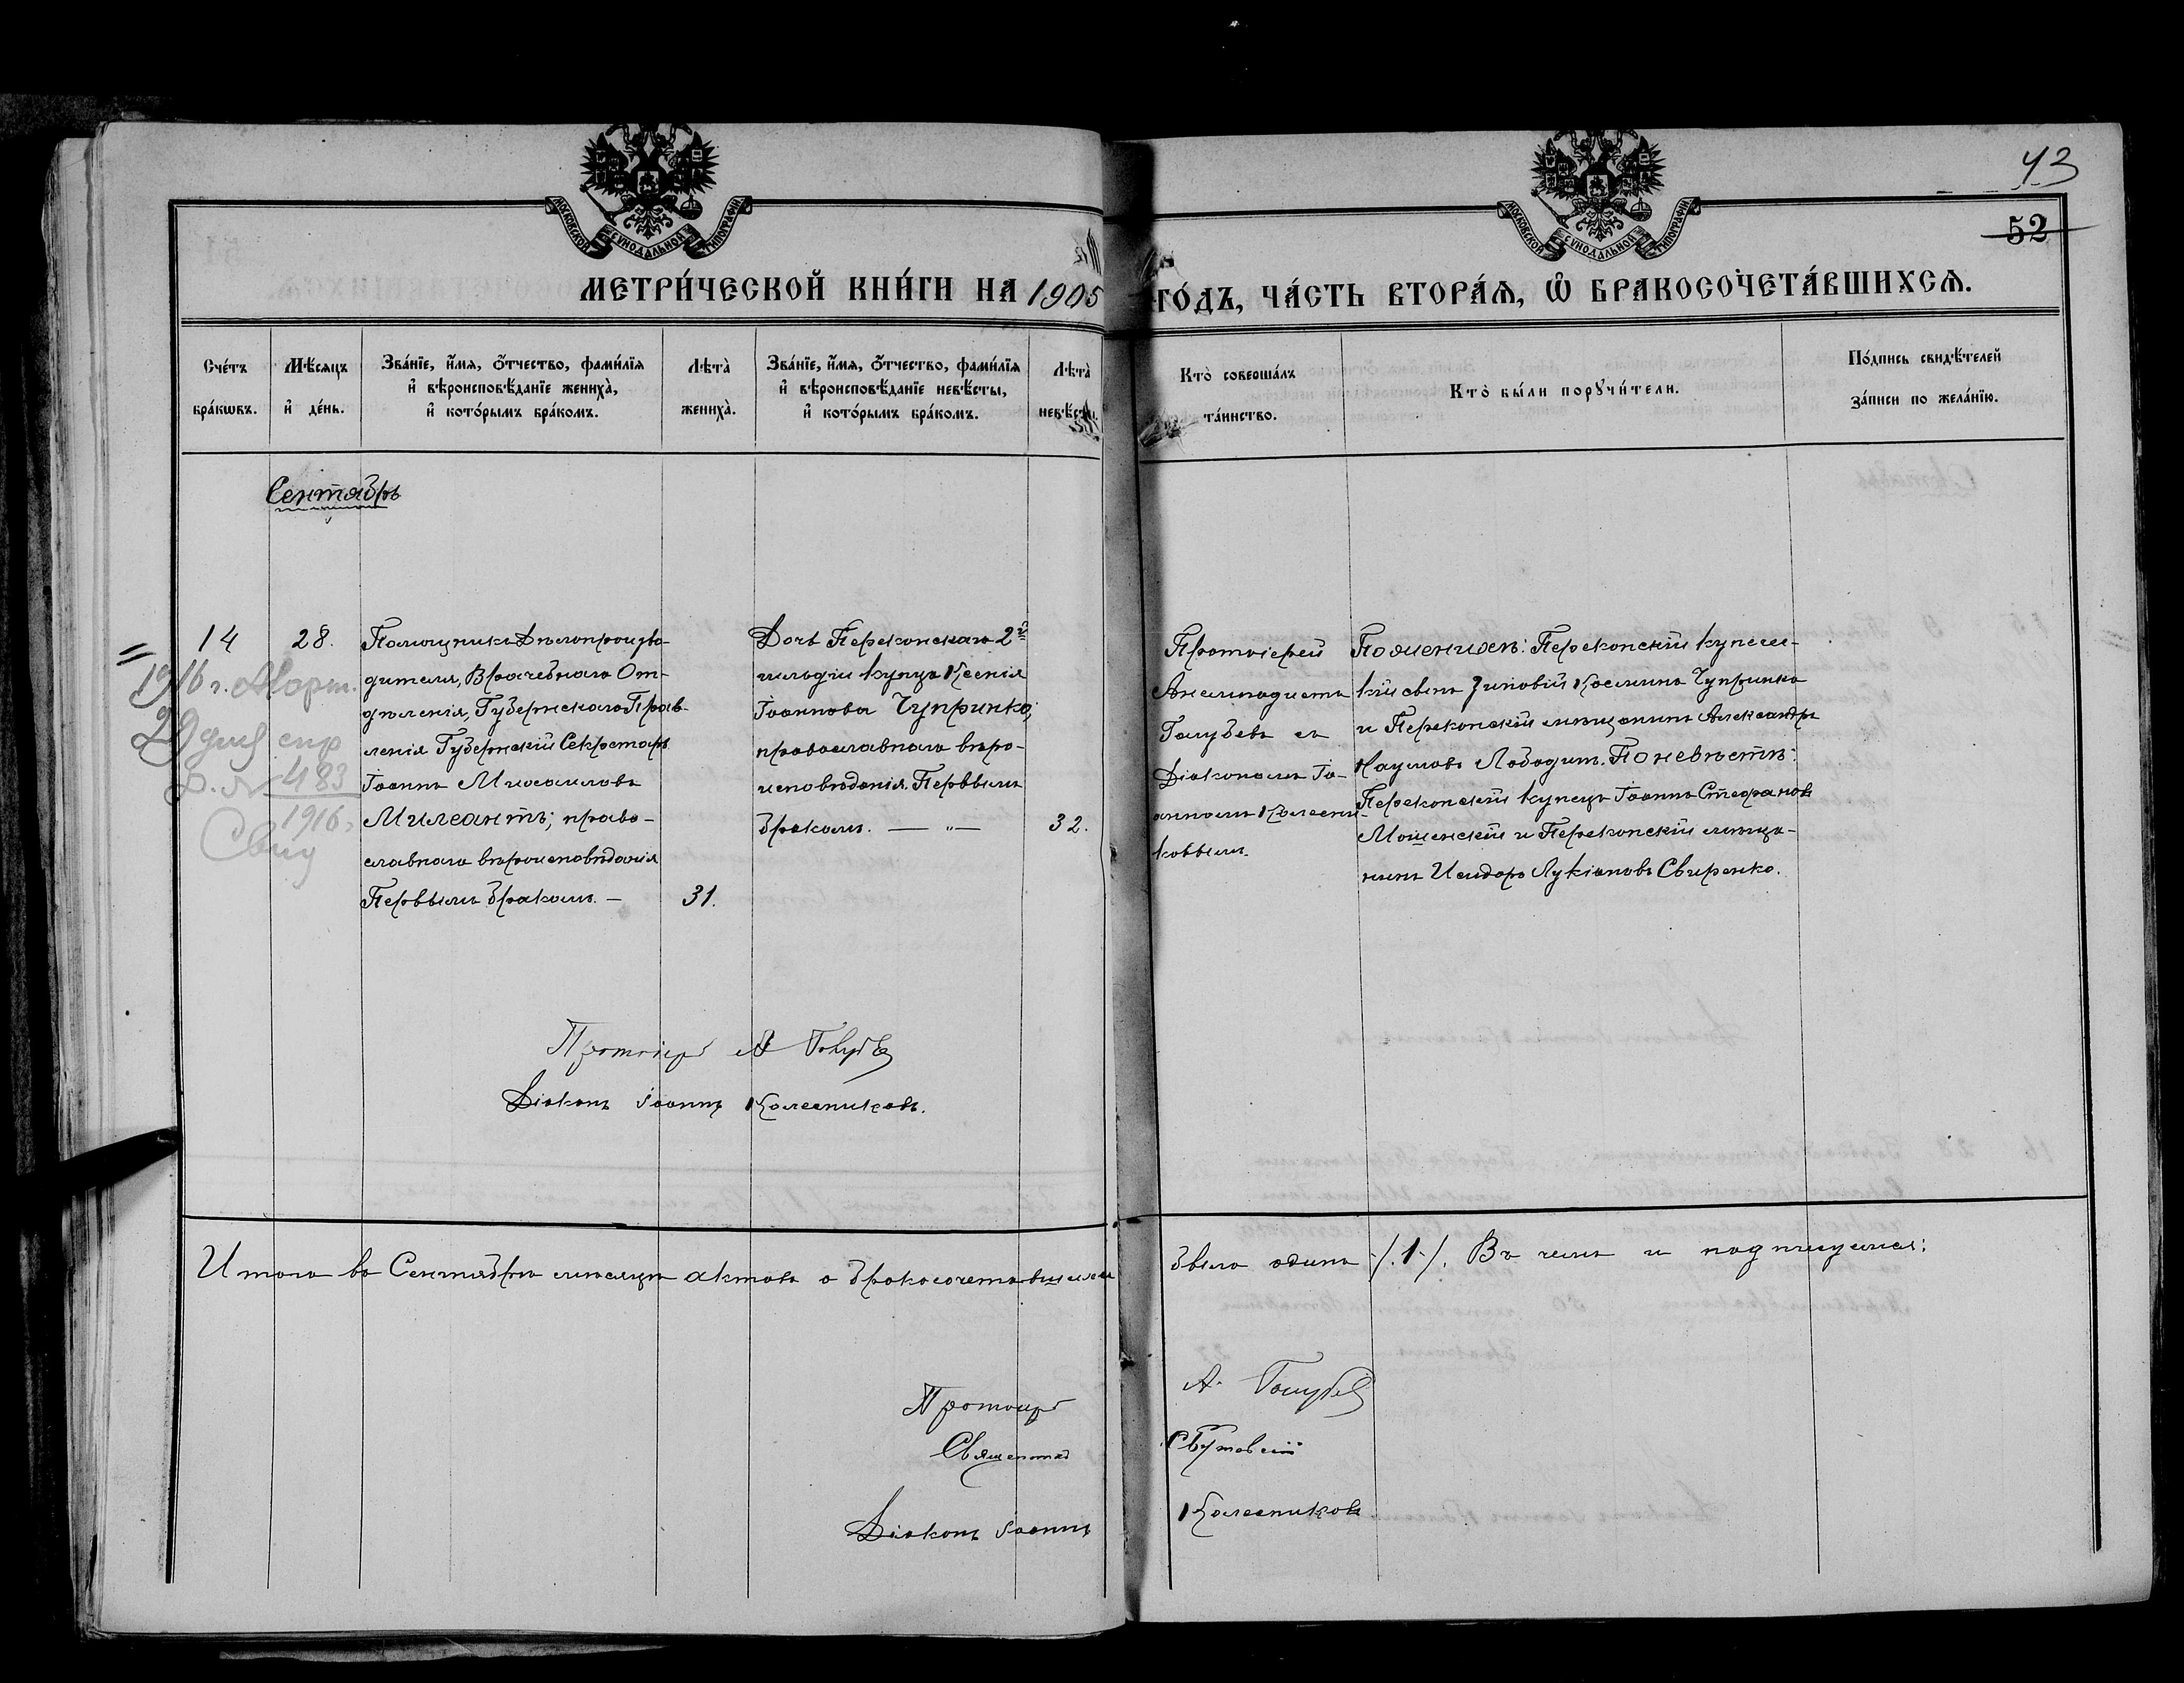 МОСКОВСКОЙ СУНОДАЛЬНОЙ ТИПОГРАФІИ
МОСКОВСКОЙ СУНОДАЛЬНОЙ ТИПОГРАФІИ
43
52
МЕТРИ́ЧЕСКОЙ КНИ́ГИ НА 1905 ГО́ДЪ, ЧА́СТЬ ВТОРА́Ѧ, Ѡ҆ БРАКОСОЧЕТА́ВШИХСѦ.
Сче́тъ
бра́кѡвъ.
Мѣ́сяцъ
и҆ де́нь.
Зва́нїе, и҆́мя, ѻ҆́тчество, фами́лїя
и҆ вѣроисповѣ́данїе жениха̀,
и҆ кото́рымъ бра́комъ.
Лѣта̀
жениха̀.
Зва́нїе, и҆́мя, ѻ҆́тчество, фами́лїя
и҆ вѣроисповѣ́данїе невѣ́сты,
и҆ кото́рымъ бра́комъ.
Лѣта̀
невѣ́сты.
Кто̀ соверша́лъ
та́инство.
Кто̀ бы́ли порꙋчи́тели.
По́дпись свидѣ́телей
за́писи по жела́нїю.
Сентябрь
14
28.
Помощникъ Дѣлопроизво-
дителя, Врачебнаго От-
дѣленія, Губернскаго Прав-
ленія Губернскій Секретарь
Іоаннъ Михаиловъ
Милеантъ; право-
славнаго вѣроисповѣданія
Первымъ бракомъ. —
31.
Дочь Перекопскаго 2й
гильдіи купца Ксенія
Іоаннова Чупринко;
православнаго вѣро-
исповѣданія. Первымъ
бракомъ. — „ —
32.
Протоіерей
Анемподистъ
Голубевъ съ
Діакономъ Іо-
анномъ Колесни-
ковымъ.
По женихѣ: Перекопскій купечес-
кій сынъ Зиновій Косминъ Чупринко
и Перекопскій мѣщанинъ Александръ
Наумовъ Лободин. По невѣстѣ:
Перекопскій купецъ Іоаннъ Стефановъ
Мошенскій и Перекопскій мѣща-
нинъ Исидоръ Лукіановъ Свиренко.
1916 г. Март.
29 дня спр
№ 483
1916
Свид
Протоіер А Голубев
Діаконъ Іоаннъ Колесниковъ.
Итого въ Сентябрѣ мѣсяцѣ актовъ о бракосочетавшихся было одинъ /.1./. Въ чемъ и подписуемся:
Протоіер А. Голубев
Священник
Діаконъ Іоаннъ Колесниковъ